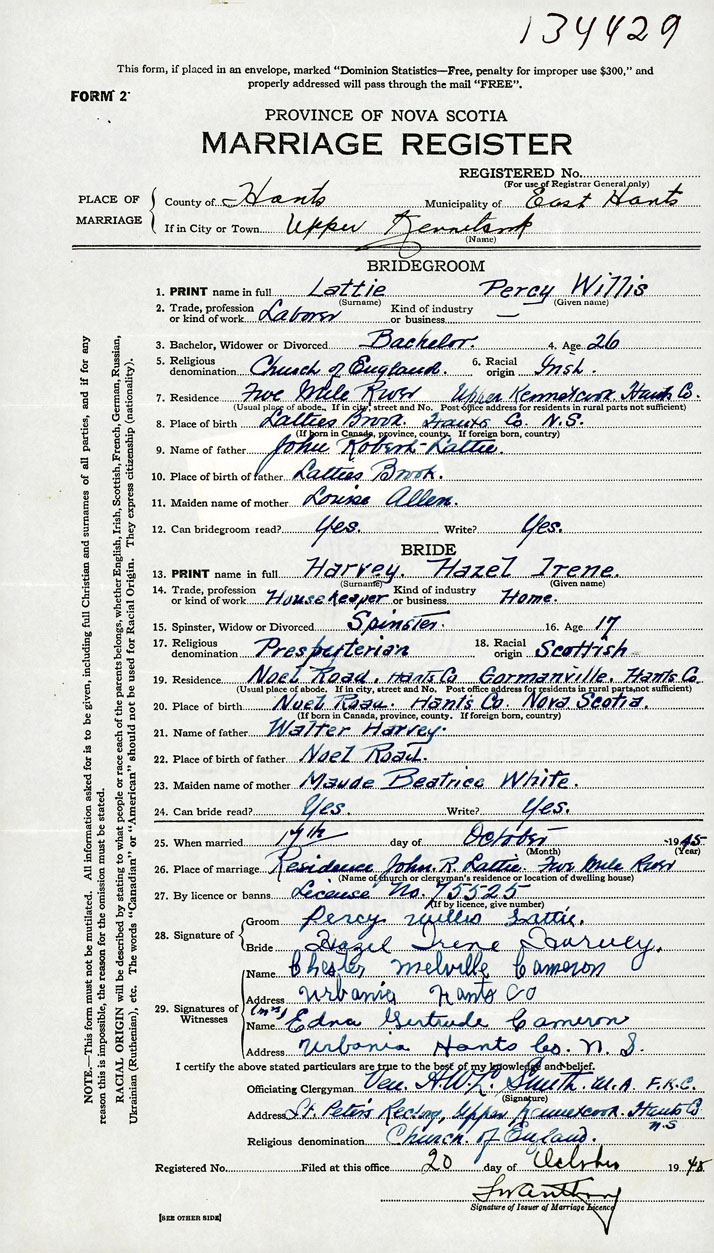 134429
This form, if placed in an envelope, marked "Dominion Statistics—Free, penalty for improper use $300," and
properly addressed will pass through the mail "FREE".
FORM 2
PROVINCE OF NOVA SCOTIA
MARRIAGE REGISTER
REGISTERED No.
(For use of Registrar General only)
PLACE OF MARRIAGE
County of Hants Municipality of East Hants
If in City or Town Upper Kennetcook
(Name)
BRIDEGROOM
1. PRINT name in full Lattie Percy Willis
(Surname) (Given name)
2. Trade, profession or kind of work Laborer Kind of industry or business —
3. Bachelor, Widower or Divorced Bachelor. 4. Age 26
5. Religious denomination Church of England. 6. Racial origin Irish.
7. Residence Five Mile River Upper Kennetcook Hants Co.
(Usual place of abode. If in city, street and No. Post office address for residents in rural parts not sufficient)
8. Place of birth Latties Brook Hants Co. N.S.
(If born in Canada, province, county. If foreign born, country)
9. Name of father John Robert Lattie.
10. Place of birth of father Latties Brook.
11. Maiden name of mother Louise Allen.
12. Can bridegroom read? Yes. Write? Yes.
BRIDE
13. PRINT name in full Harvey. Hazel Irene.
(Surname) (Given name)
14. Trade, profession or kind of work Housekeeper Kind of industry or business Home.
15. Spinster, Widow or Divorced Spinster. 16. Age 17
17. Religious denomination Presbyterian 18. Racial origin Scottish
19. Residence Noel Road. Hants Co Gormanville. Hants Co
(Usual place of abode. If in city, street and No. Post office address for residents in rural parts not sufficient)
20. Place of birth Noel Road. Hants Co. Nova Scotia.
(If born in Canada, province, county. If foreign born, country)
21. Name of father Walter Harvey.
22. Place of birth of father Noel Road.
23. Maiden name of mother Maude Beatrice White.
24. Can bride read? Yes. Write? Yes.
25. When married 17th day of October 1945
(Month) (Year)
26. Place of marriage Residence John. R. Lattie. Five Mile River
(Name of church or clergyman's residence or location of dwelling house)
27. By licence or banns License No. 75525
(If by licence, give number)
28. Signature of
Groom Percy Willis Lattie.
Bride Hazel Irene Harvey.
29. Signatures of Witnesses
Name Chester Melville Cameron
Address Urbania Hants Co
(Mrs)
Name Edna Gertrude Cameron
Address Urbania Hants Co. N. S.
I certify the above stated particulars are true to the best of my knowledge and belief.
Officiating Clergyman Ven. Smith M.A. F.K.C.
(Signature)
Address St. Peter's Rectory, Upper Kennetcook. Hants Co
N.S
Religious denomination Church of England.
Registered No. Filed at this office 20 day of October 1945
Signature of Issuer of Marriage Licence
[SEE OTHER SIDE]
NOTE.—This form must not be mutilated. All information asked for is to be given, including full Christian and surnames of all parties, and if for any
reason this is impossible, the reason for the omission must be stated.
RACIAL ORIGIN will be described by stating to what people or race each of the parents belongs, whether English, Irish, Scottish, French, German, Russian,
Ukrainian (Ruthenian), etc. The words "Canadian" or "American" should not be used for Racial Origin. They express citizenship (nationality).